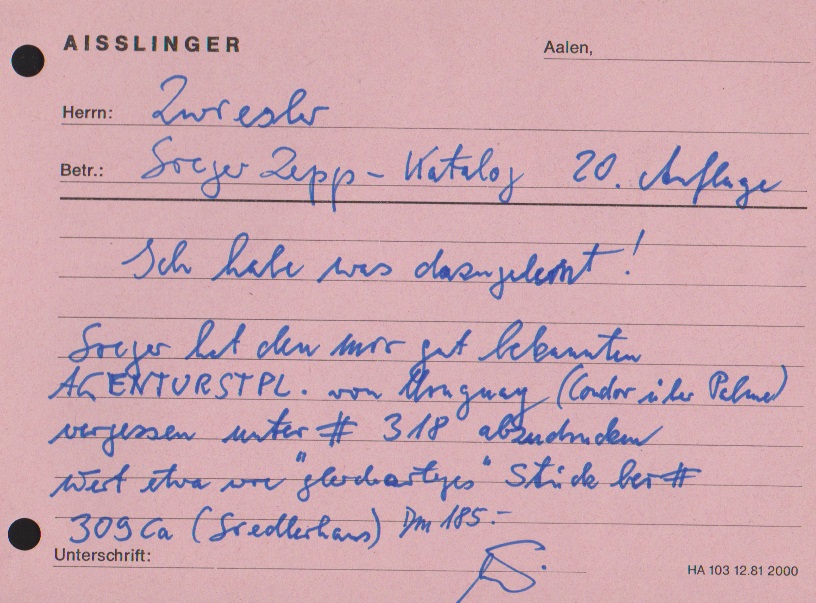 AISSLINGER
Aalen,
Herrn: Zwiesler
Betr.: Sieger Zepp - Katalog 20. Auflage
Ich habe was dazugelernt!
Sieger hat den mir gut bekannten
AGENTURSTPL. von Uruguay (Condor über Palme)
vergessen unter # 318 abzudrucken
Wert etwa wie "gleichartiges" Stück bei #
309 Ca (Friedlerhaus) DM 185.-
Unterschrift:
HA 103 12.81 2000